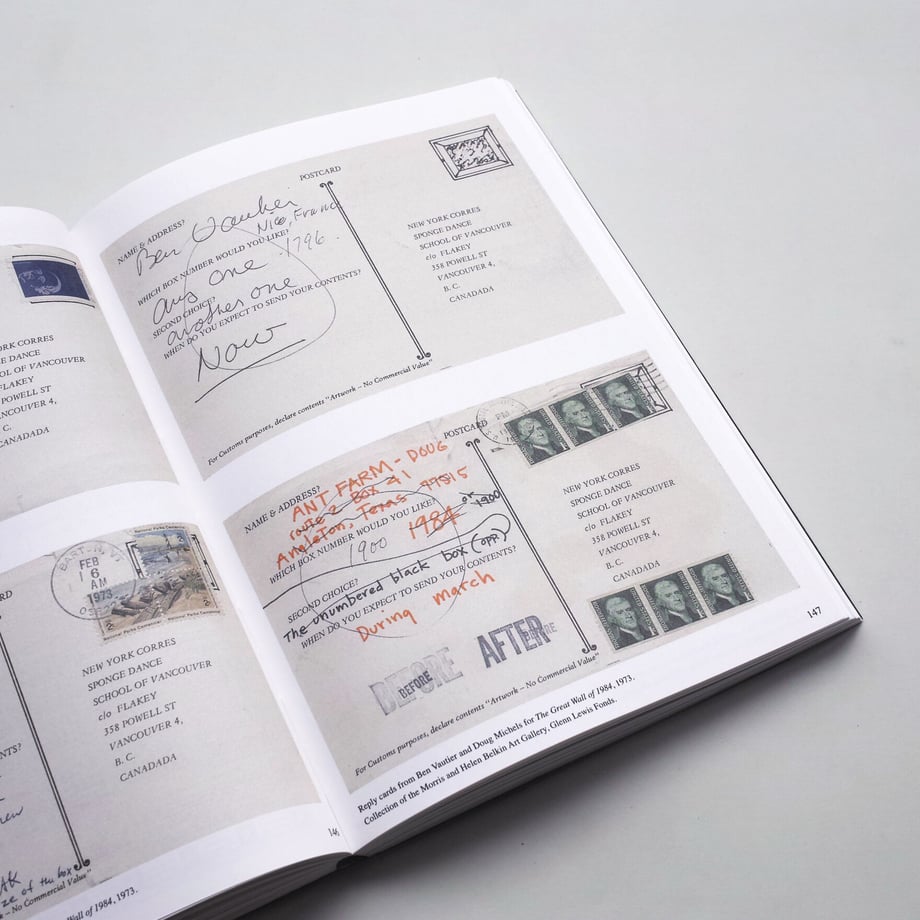 RK CORRES
DANCE
OL OF VANCOUVER
FLAKEY
POWELL ST
ANCOUVER 4,
C.
CANADADA
RD
FEB
16
AM
1973
National Parks Centennial
NEW YORK CORRES
SPONGE DANCE
SCHOOL OF VANCOUVER
c/o FLAKEY
358 POWELL ST
VANCOUVER 4,
B. C.
CANADADA
NTS?
ze of the box
No Commercial Value"
all of 1984, 1973.
146
POSTCARD
NAME & ADDRESS?
Ben Vautier
Nice, France
WHICH BOX NUMBER WOULD YOU LIKE?
any one 1796.
SECOND CHOICE?
another one
WHEN DO YOU EXPECT TO SEND YOUR CONTENTS?
Now
For Customs purposes, declare contents "Artwork – No Commercial Value"
NEW YORK CORRES
SPONGE DANCE
SCHOOL OF VANCOUVER
c/o FLAKEY
358 POWELL ST
VANCOUVER 4,
B. C.
CANADADA
POSTCARD
NAME & ADDRESS?
ANT FARM - DOUG
route 2 Box 41
Angleton, Texas 77515
WHICH BOX NUMBER WOULD YOU LIKE?
1900 1984 or 1900
SECOND CHOICE?
The unumbered black box (OPP)
WHEN DO YOU EXPECT TO SEND YOUR CONTENTS?
During march
BEFORE
BEFORE
AFTER
BEFORE
For Customs purposes, declare contents "Artwork – No Commercial Value"
NEW YORK CORRES
SPONGE DANCE
SCHOOL OF VANCOUVER
c/o FLAKEY
358 POWELL ST
VANCOUVER 4,
B. C.
CANADADA
Reply cards from Ben Vautier and Doug Michels for The Great Wall of 1984, 1973.
Collection of the Morris and Helen Belkin Art Gallery, Glenn Lewis Fonds.
147